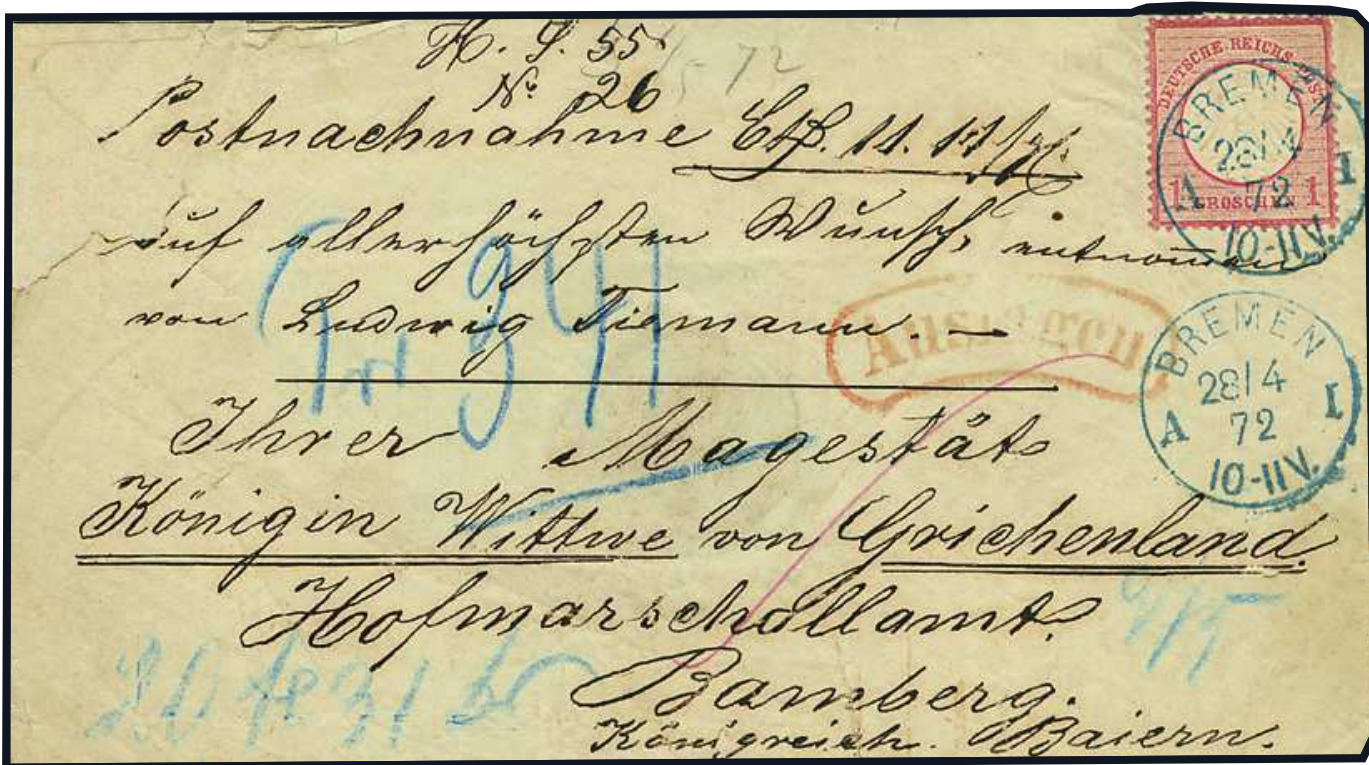 H. S. 55
No. 26
72
Postnachnahme
auf allerhöchsten Wunsch, entnommen
von Ludwig Tiemann. —
Ihrer Magestät
Königin Wittwe von Grichenland.
Hofmarschallamt.
Bamberg.
Königreich. Baiern.
DEUTSCHE REICHS-POST
1 GROSCHEN 1
BREMEN
28/4
A 72 I
10-11V.
Auslagen
BREMEN
28/4
A 72 I
10-11V.